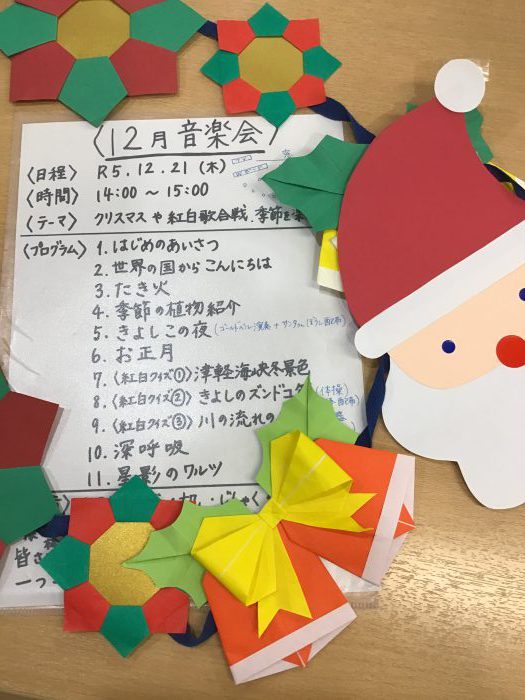 〈12月音楽会〉
〈日程〉 R5.12.21 (木)
〈時間〉 14:00 〜 15:00
〈テーマ〉 クリスマスや紅白歌合戦、季節を
〈プログラム〉 1. はじめのあいさつ
2. 世界の国からこんにちは
3. たき火
4. 季節の植物紹介
5. きよしこの夜
6. お正月
7. 〈紅白クイズ①〉津軽海峡冬景色
8. 〈紅白クイズ②〉きよしのズンドコ (体操)
9. 〈紅白クイズ③〉川の流れの
10. 深呼吸
11. 星影のワルツ
皆さ
一つ